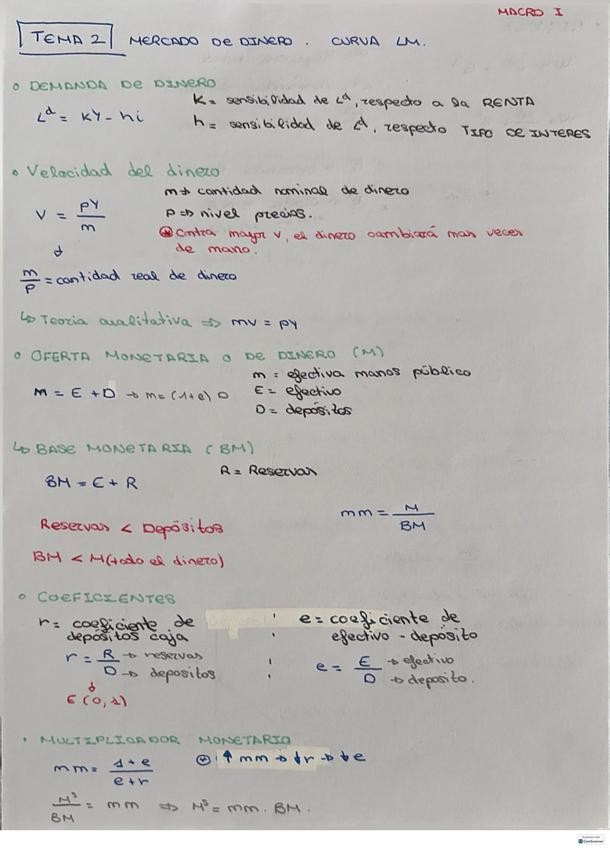 MACRO I
TEMA 2 MERCADO DE DINERO. CURVA LM.
o DEMANDA DE DINERO
L^d = kY - hi
K = sensibilidad de L^d, respecto a la RENTA
h = sensibilidad de L^d, respecto TIPO DE INTERES
• Velocidad del dinero
m → cantidad nominal de dinero
V = PY/m
P ⇒ nivel precios.
contra mayor v, el dinero cambiará mas veces
de mano.
↓
m/P = cantidad real de dinero
↳ Teoria cualitativa ⇒ mv = py
o OFERTA MONETARIA O DE DINERO (M)
m = efectiva manos público
M = E + D → m = (1+e) D
E = efectivo
D = depósitos
↳ BASE MONETARIA (BM)
R = Reservas
BM = E + R
mm = M/BM
Reservas < Depósitos
BM < M (todo el dinero)
o COEFICIENTES
r = coeficiente de
depósitos caja
e = coeficiente de
efectivo - depósito
r = R/D → reservas → depositos
e = E/D → efectivo → deposito.
↓
E (0,1)
• MULTIPLICADOR MONETARIO
mm = 1+e/e+r
↑ mm → ↓r → ↓e
M^s/BM = mm ⇒ M^s = mm · BM.
CamScanner